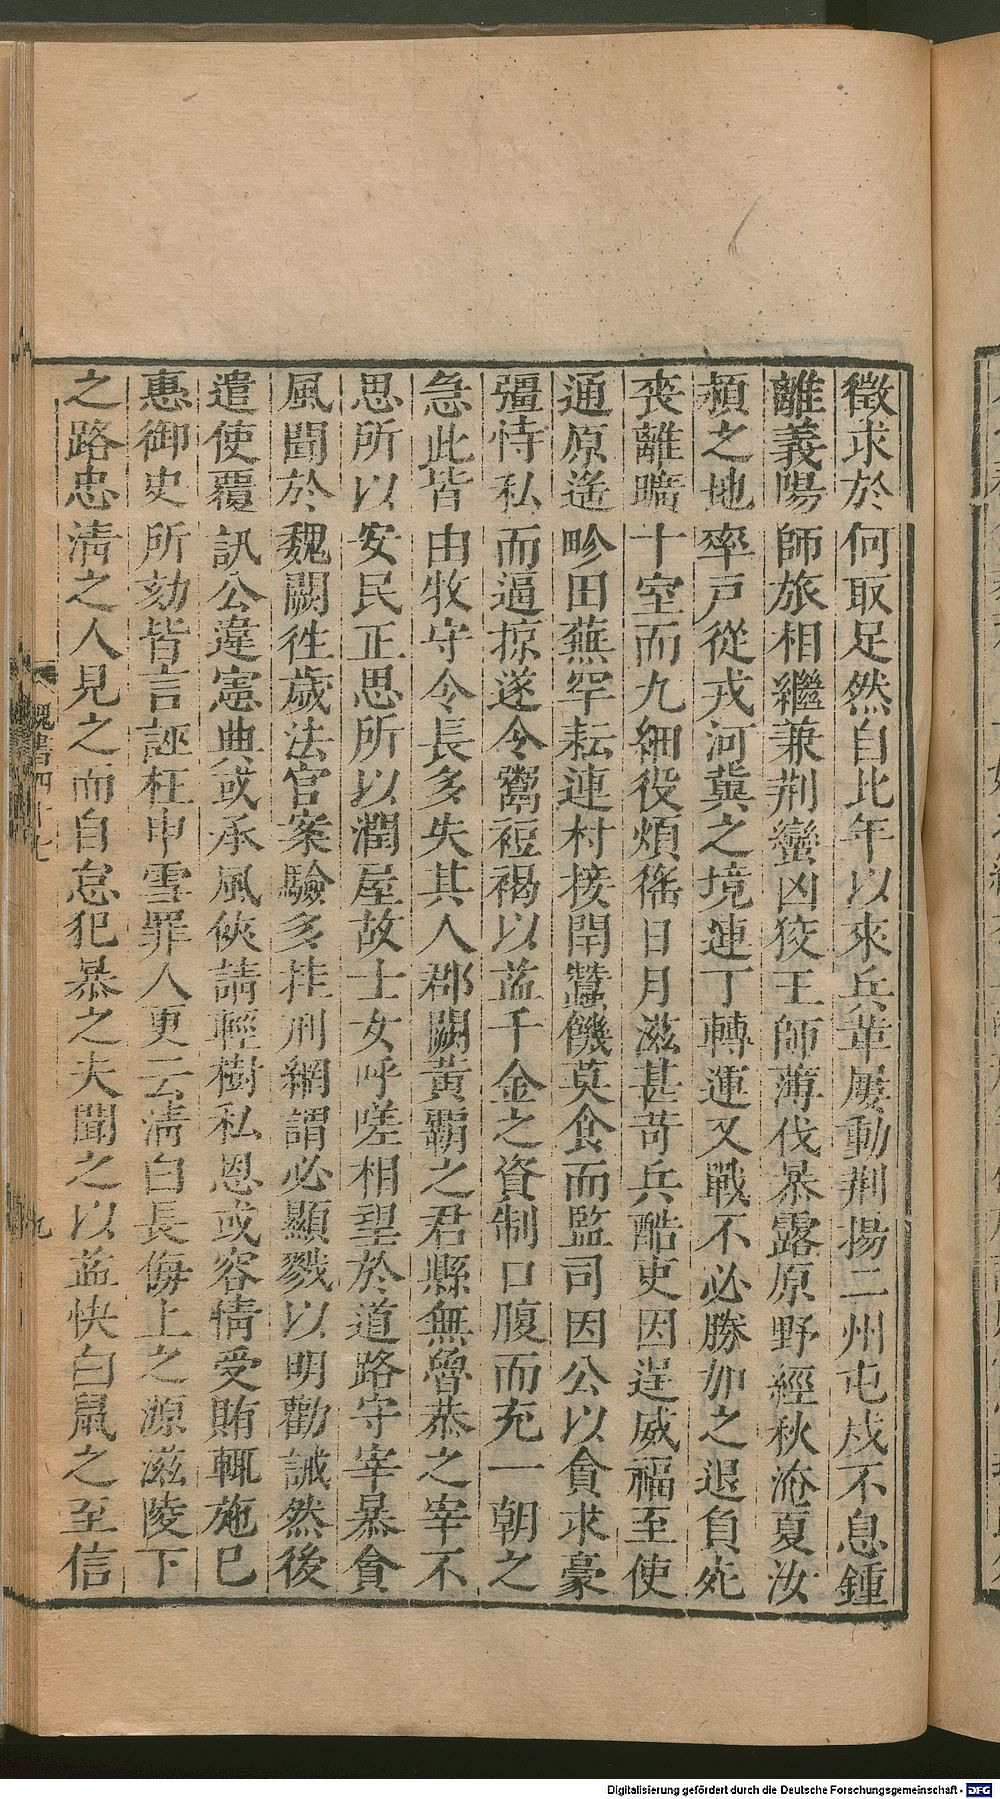 徵求於何取足然自比年以來兵革屢動荆揚二州屯戍不息鍾
離義陽師旅相繼兼荆蠻凶狡王師薄伐暴露原野經秋淹夏汝
潁之地率戸從戎河冀之境連丁轉運又戰不必勝加之退負死
喪離曠十室而九細役煩徭日月滋甚苛兵酷吏因逞威福至使
通原遙畛田蕪罕耘連村接閈蠶饑莫食而監司因公以貪求豪
彊恃私而逼掠遂令鬻裋褐以益千金之資制口腹而充一朝之
急此皆由牧守令長多失其人郡闕黃霸之君縣無魯恭之宰不
思所以安民正思所以潤屋故士女呼嗟相望於道路守宰暴貪
風聞於魏闕徃歲法官案驗多挂刑網謂必顯戮以明勸誡然後
遣使覆訊公違憲典或承風俠請輕樹私恩或容情受賄輒施已
惠御史所劾皆言誣枉申雪罪人更云清白長侮上之源滋陵下
之路忠清之人見之而自怠犯暴之夫聞之以益快白鼠之至信
魏書四十七
九
Digitalisierung gefördert durch die Deutsche Forschungsgemeinschaft - DFG